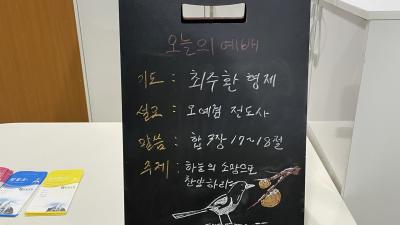 오늘의 예배
기도 : 최수환 형제
설교 : 오예현 전도사
말씀 : 합 3장 17~18절
주제 : 하늘의 소망으로
찬양하라